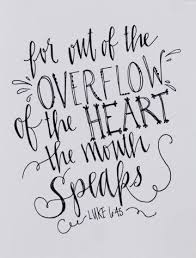 for out of the
OVERFLOW
of the HEART
the mouth
Speaks
LUKE 6:45